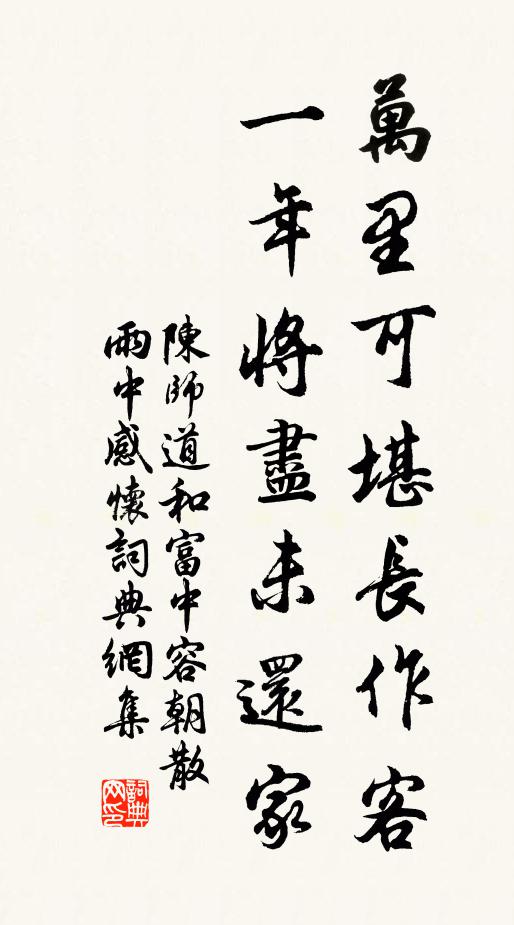 萬里可堪長作客
一年將盡未還家
陳師道和富中容朝散
雨中感懷詞典網集
詞典
网印